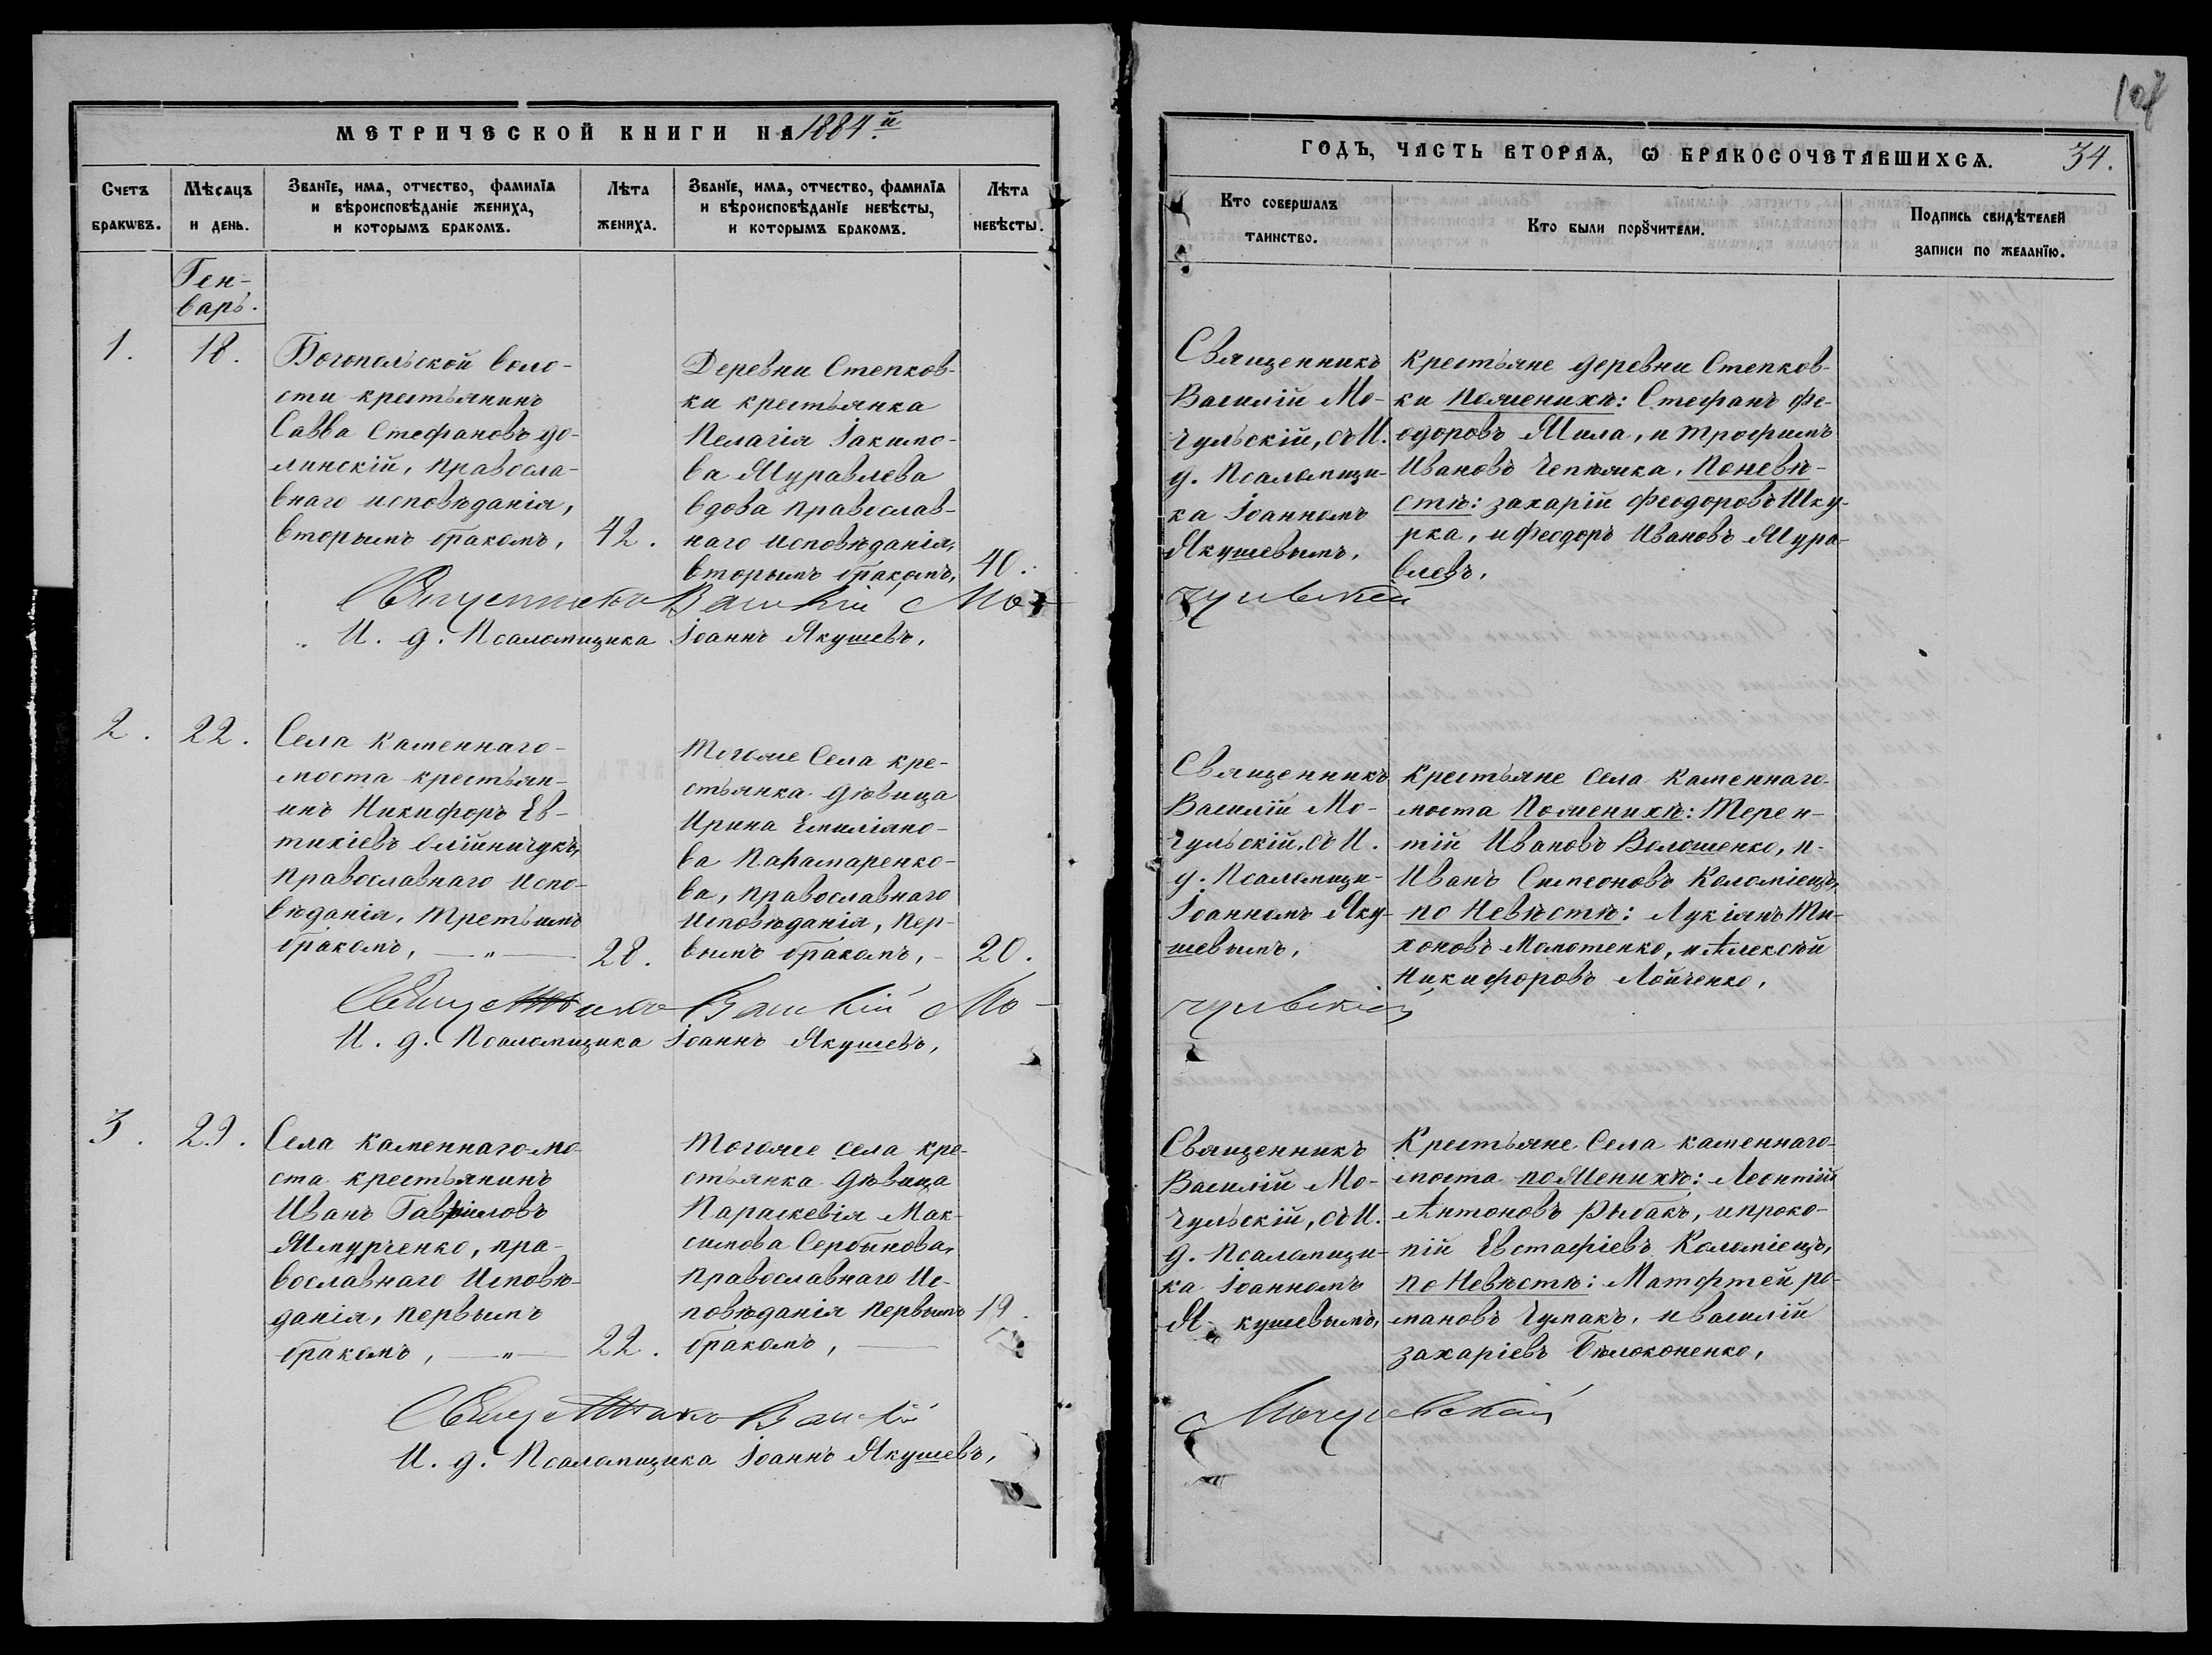 108
МЕТРИЧЕСКОЙ КНИГИ НА 1884.й
ГОДЪ, ЧАСТЬ ВТОРАѦ, Ѡ БРАКОСОЧЕТАВШИХСѦ. 34.
Счетъ бракѡвъ.
Мѣсѧцъ и день.
Званїе, имѧ, отчество, фамилїѧ
и вѣроисповѣданїе жениха,
и которымъ бракомъ.
Лѣта жениха.
Званїе, имѧ, отчество, фамилїѧ
и вѣроисповѣданїе невѣсты,
и которымъ бракомъ.
Лѣта невѣсты.
Кто совершалъ таинство.
Кто были порꙋчители.
Подпись свидѣтелей
записи по желанїю.
Ген-
варь.
1.
18.
Богопольской воло-
сти крестьянинъ
Савва Стефановъ До-
линскій, правосла-
внаго исповѣданія,
вторымъ бракомъ,
42.
Деревни Степков-
ки крестьянка
Пелагія Іакимо-
ва Муравлева
вдова православ-
наго исповѣданія,
вторымъ бракомъ,
40.
Священникъ
Василій Мо-
чульскій, съ И.
д. Псаломщи-
ка Іоанномъ
Якушевымъ.
Крестьяне деревни Степков-
ки по женихѣ: Стефанъ Фе-
одоровъ Мила, и Трофимъ
Ивановъ Чепижка, по невѣ-
стѣ: Захарій Феодоровъ Шку-
рка, и Феодоръ Ивановъ Мура-
влевъ.
Священникъ Василій Мо-
чульскій
И. д. Псаломщика Іоаннъ Якушевъ.
2.
22.
Села Каменнаго-
моста крестьян-
инъ Никифоръ Ев-
тихіевъ Олійничукъ,
православнаго испо-
вѣданія, третьимъ
бракомъ, —„—
28.
Тогоже Села кре-
стьянка дѣвица
Ирина Емиліано-
ва Панамаренко-
ва, православнаго
исповѣданія, пер-
вымъ бракомъ, -
20.
Священникъ
Василій Мо-
чульскій, съ И.
д. Псаломщи-
Іоанномъ Яку-
шевымъ.
Крестьяне Села Каменнаго-
моста по женихѣ: Терен-
тій Ивановъ Волошенко, и
Иванъ Симеоновъ Коломіецъ,
по невѣстѣ: Лукіянъ Ти-
хоновъ Молотенко, и Алексѣй
Никифоровъ Лойченко.
Священникъ Василій Мо-
чульскій
И. д. Псаломщика Іоаннъ Якушевъ.
3.
29.
Села Каменнаго-мо-
ста крестьянинъ
Иванъ Гавриловъ
Жмурченко, пра-
вославнаго исповѣ-
данія, первымъ
бракомъ, —„—
22.
Тогоже села кре-
стьянка дѣвица
Параскевія Мак-
симова Сербинова,
православнаго ис-
повѣданія первымъ
бракомъ, —
19.
Священникъ
Василій Мо-
чульскій, съ И.
д. Псаломщи-
ка Іоанномъ
Я-кушевымъ.
Крестьяне Села Каменнаго-
моста по женихѣ: Леонтій
Антоновъ Рыбакъ, и Проко-
пій Евстафіевъ Коломіецъ,
по невѣстѣ: Матфтей Ро-
мановъ Чумакъ, и Василій
Захаріевъ Бѣлоконенко.
Священникъ Василій
Мочульскій
И. д. Псаломщика Іоаннъ Якушевъ.